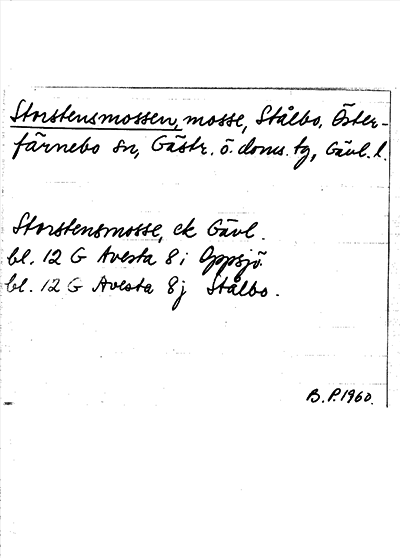 Storstensmossen, mosse, Stålbo, Öster-
färnebo sn, Gästr. ö. doms. tg, Gävl. l.
Storstensmosse, ek Gävl.
bl. 12 G Avesta 8 i Oppsjö.
bl. 12 G Avesta 8 j Stålbo.
B. P. 1960.